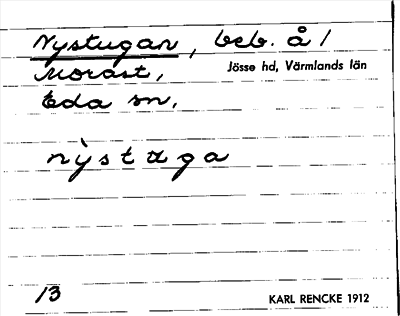 Nystugan, beb. å /
Morast, Jösse hd, Värmlands län
Eda sn.
nỳstuga
13 KARL RENCKE 1912